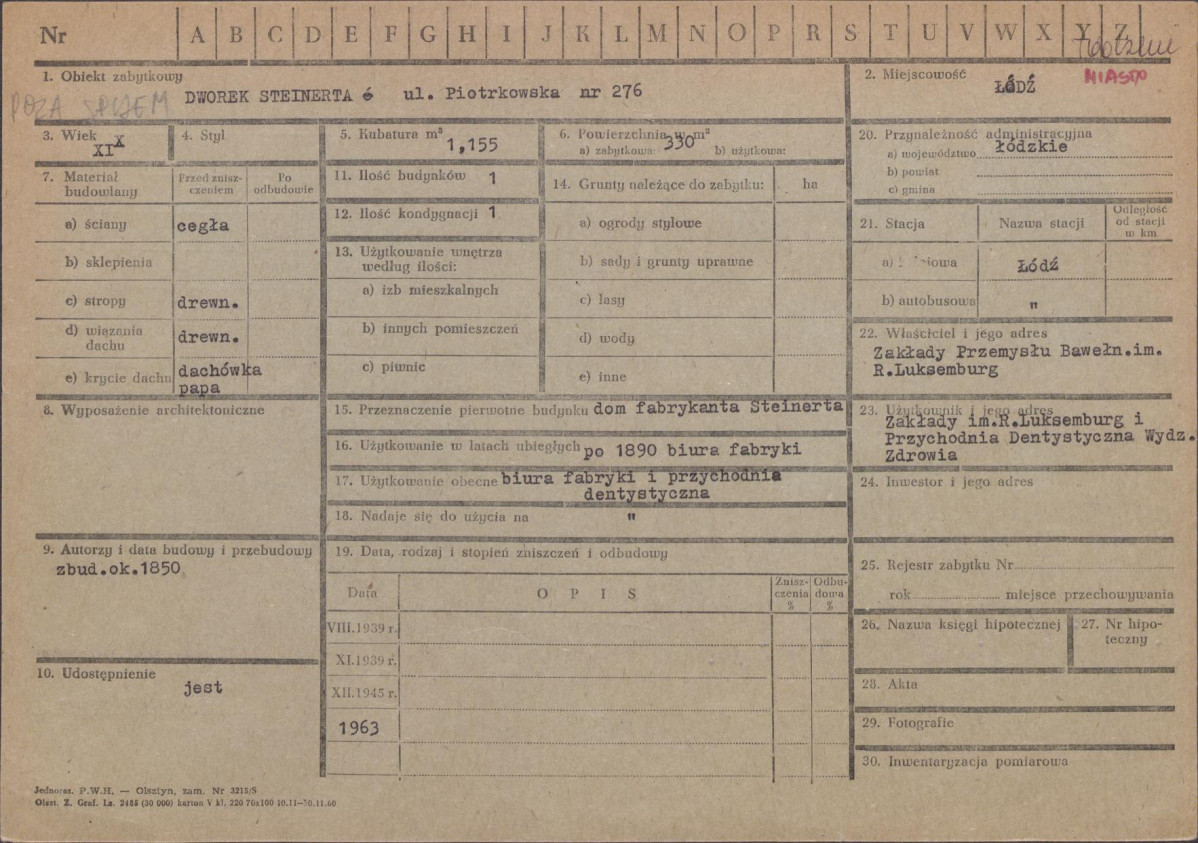 Nr A B C D E F G H I J K L M N O P R S T U V W X Y Z
1. Obiekt zabytkowy
POZA SPISEM
DWOREK STEINERTA ul. Piotrkowska nr 276
2. Miejscowość
ŁÓDŹ
MIASTO
3. Wiek
XIX
4. Styl
5. Kubatura m³
1,155
6. Powierzchnia w m²
330
a) zabytkowa: b) użytkowa:
20. Przynależność administracyjna
a) województwo łódzkie
b) powiat
c) gmina
7. Materiał budowlany
Przed znisz-
czeniem
Po
odbudowie
a) ściany cegła
b) sklepienia
c) stropy drewn.
d) wiązania
dachu
drewn.
e) krycie dachu
dachówka
papa
11. Ilość budynków 1
12. Ilość kondygnacji 1
13. Użytkowanie wnętrza
według ilości:
a) izb mieszkalnych
b) innych pomieszczeń
c) piwnic
14. Grunty należące do zabytku: ha
a) ogrody stylowe
b) sady i grunty uprawne
c) lasy
d) wody
e) inne
21. Stacja
Nazwa stacji
Odległość
od stacji
w km
a) Łódź
b) autobusowa "
22. Właściciel i jego adres
Zakłady Przemysłu Bawełn.im.
R.Luksemburg
8. Wyposażenie architektoniczne
15. Przeznaczenie pierwotne budynku dom fabrykanta Steinerta
16. Użytkowanie w latach ubiegłych po 1890 biura fabryki
17. Użytkowanie obecne biura fabryki i przychodnia
dentystyczna
18. Nadaje się do użycia na "
23. Użytkownik i jego adres
Zakłady im.R.Luksemburg i
Przychodnia Dentystyczna Wydz.
Zdrowia
24. Inwestor i jego adres
9. Autorzy i data budowy i przebudowy
zbud.ok.1850
10. Udostępnienie
jest
19. Data, rodzaj i stopień zniszczeń i odbudowy
Data
O P I S
Znisz-
czenia
%
Odbu-
dowa
%
VIII.1939 r.
XI.1939 r.
XII.1945 r.
1963
25. Rejestr zabytku Nr
rok miejsce przechowywania
26. Nazwa księgi hipotecznej
27. Nr hipo-
teczny
28. Akta
29. Fotografie
30. Inwentaryzacja pomiarowa
Jednoraz. P.W.H. — Olsztyn, zam. Nr 3215/S
Olszt. Z. Graf. Lz. 2485 (30 000) karton V kl. 220 70x100 10.11—30.11.60